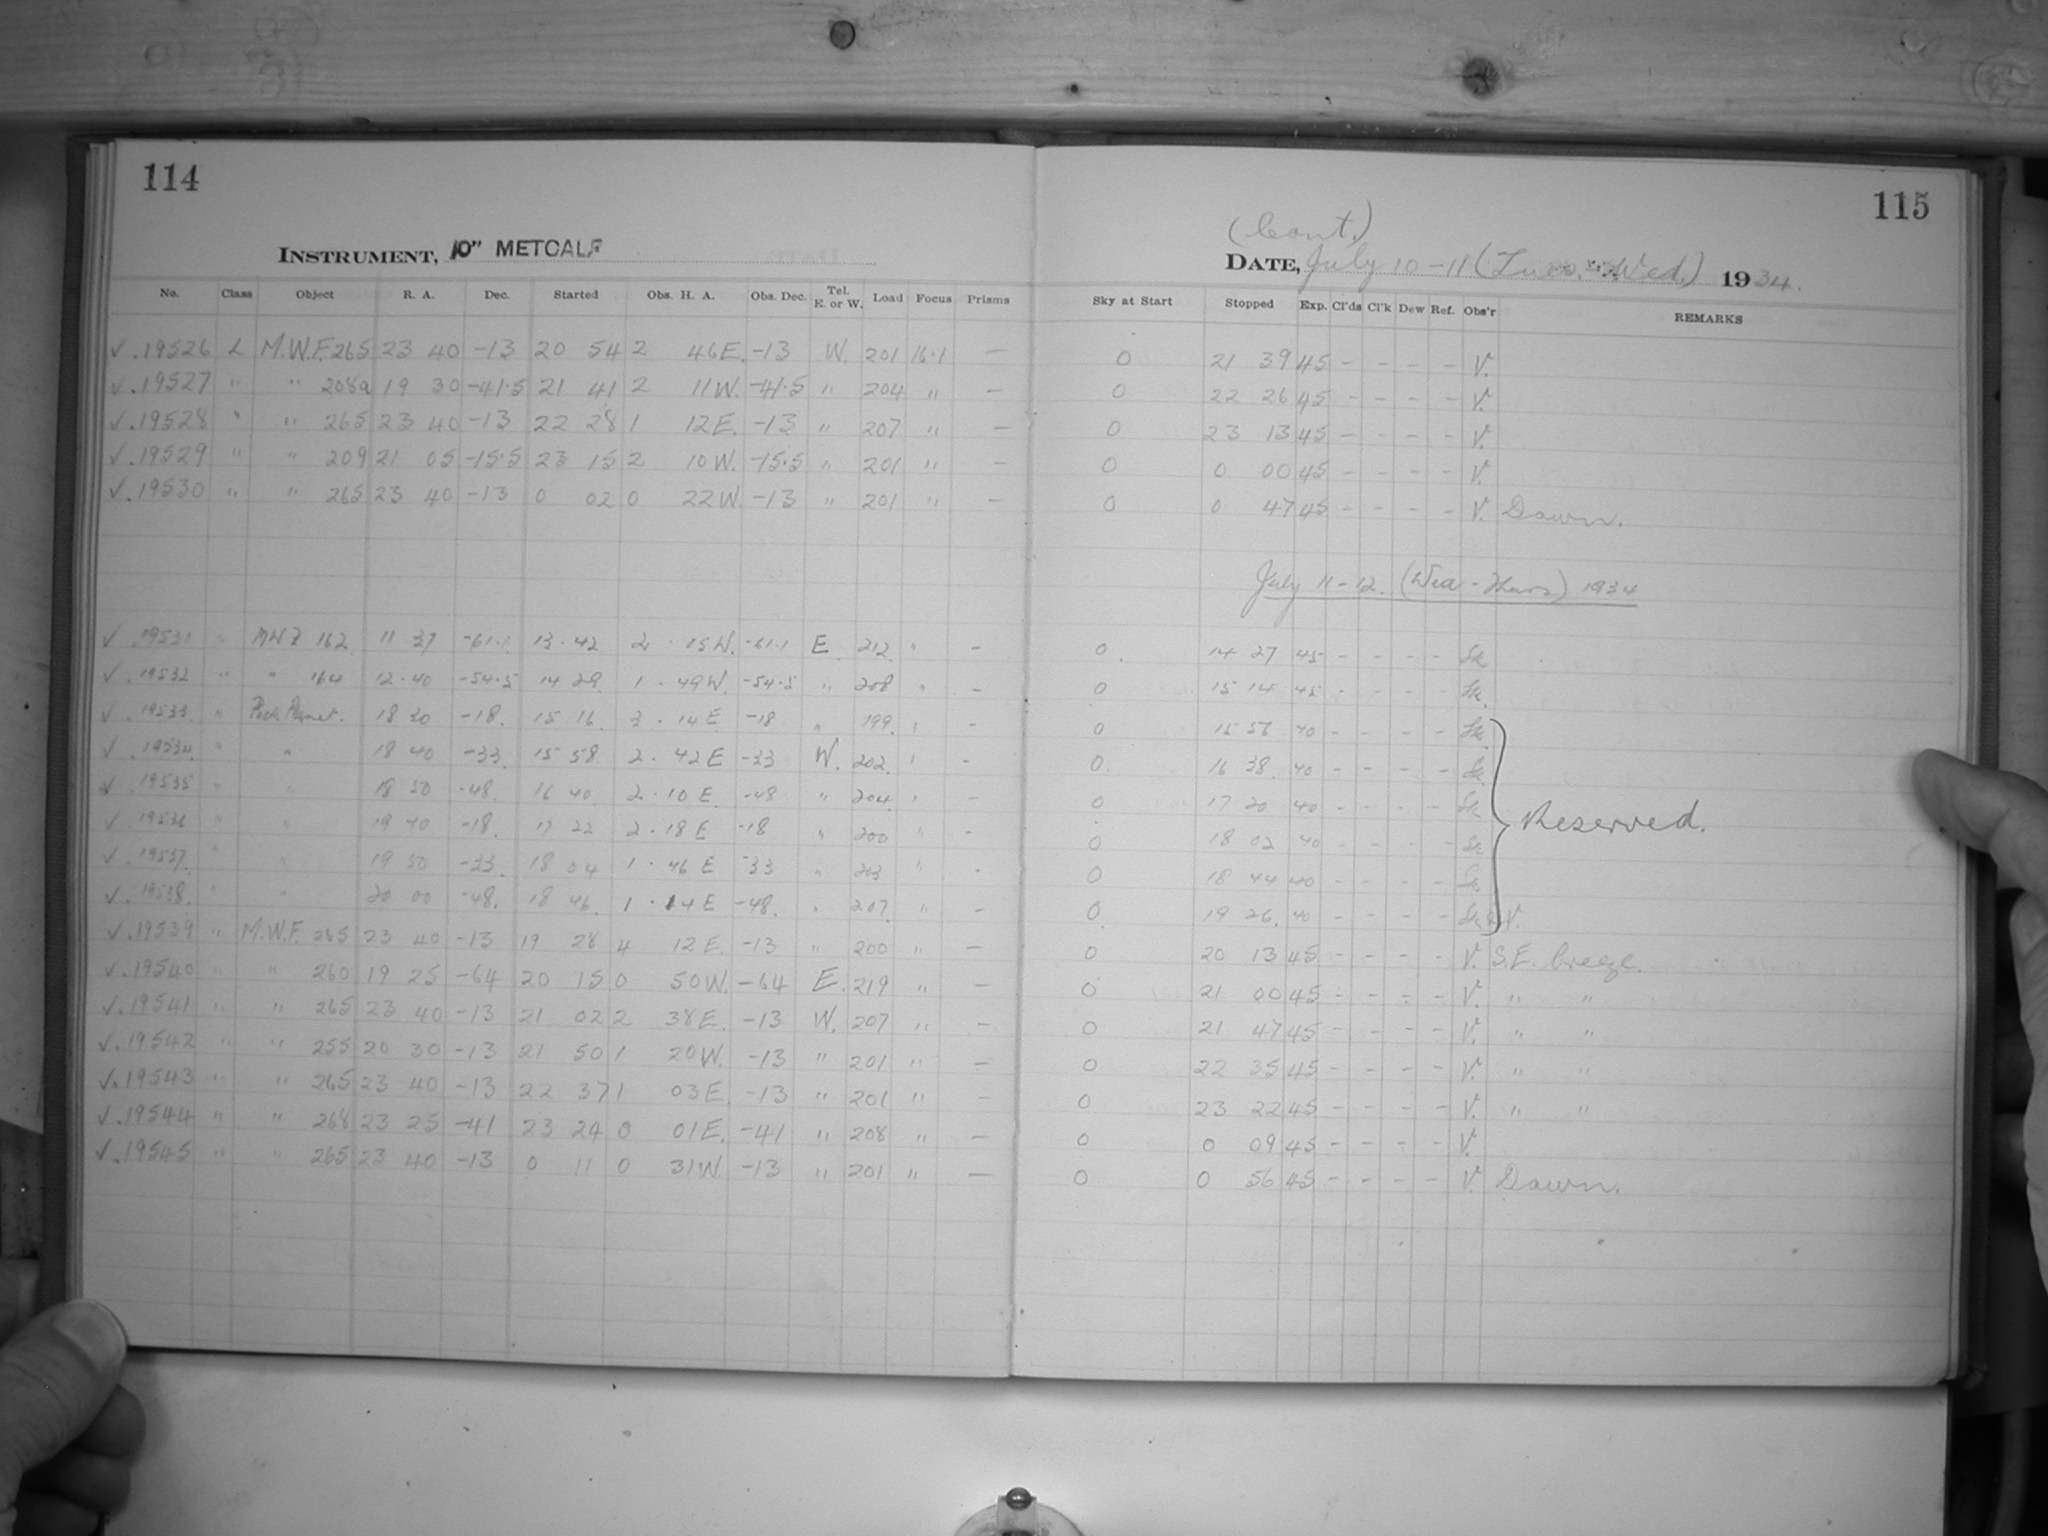 114
INSTRUMENT, 10" METCALF
No. Class Object R. A. Dec. Started Obs. H. A. Obs. Dec. Tel. E. or W. Load Focus Prisms
✓.19526 L M.W.F. 265 23 40 -13 20 54 2 46E. -13 W. 201 16.1 —
✓.19527 " " 208a 19 30 -41.5 21 41 2 11W. -41.5 " 204 " —
✓.19528 " " 265 23 40 -13 22 28 1 12E. -13 " 207 " —
✓.19529 " " 209 21 05 -15.5 23 15 2 10W. -15.5 " 201 " —
✓.19530 " " 265 23 40 -13 0 02 0 22W. -13 " 201 " —
✓.19531 " MWF 162 11 37 -61.1 13.42 2.15W. -61.1 E 212 " —
✓.19532 " " 164 12.40 -54.5 14 29 1.49W. -54.5 " 208 " —
✓.19533 " 18 20 -18. 15 16 3.14E -18 " 199 " —
✓.19534 " " 18 40 -33. 15 58 2.42E -33 W. 202 " —
✓.19535 " " 18 50 -48. 16 40 2.10E. -48 " 204 " —
✓.19536 " " 19 40 -18. 17 22 2.18E -18 " 200 " —
✓.19537 " " 19 50 -33. 18 04 1.46E -33 " 203 " —
✓.19538. " " 20 00 -48. 18 46. 1.14E -48. " 207 " —
✓.19539 " M.W.F. 265 23 40 -13 19 28 4 12E. -13 " 200 " —
✓.19540 " " 260 19 25 -64 20 15 0 50W. -64 E. 219 " —
✓.19541 " " 265 23 40 -13 21 02 2 38E. -13 W. 207 " —
✓.19542 " " 255 20 30 -13 21 50 1 20W. -13 " 201 " —
✓.19543 " " 265 23 40 -13 22 37 1 03E. -13 " 201 " —
✓.19544 " " 268 23 25 -41 23 24 0 01E. -41 " 208 " —
✓.19545 " " 265 23 40 -13 0 11 0 31W. -13 " 201 " —
115
(Cont.)
DATE, July 10-11 (Tues.-Wed.) 1934.
Sky at Start Stopped Exp. Cl'ds Cl'k Dew Ref. Obs'r REMARKS
0 21 39 45 - - - - V.
0 22 26 45 - - - - V.
0 23 13 45 - - - - V.
0 0 00 45 - - - - V.
0 0 47 45 - - - - V. Dawn.
July 11-12. (Wed-Thurs) 1934
0. 14 27 45 - - - - Sk
0 15 14 45 - - - - Sk.
0 15 56 40 - - - - Sk.
0. 16 38. 40 - - - - Sk
0 17 20 40 - - - - Sk
Reserved.
0 18 02 40 - - - - Sk
0 18 44 40 - - - - Sk
0. 19 26. 40 - - - - Sk & V.
0 20 13 45 - - - - V. S.E. breeze.
0 21 00 45 - - - - V. " "
0 21 47 45 - - - - V. " "
0 22 35 45 - - - - V. " "
0 23 22 45 - - - - V. " "
0 0 09 45 - - - - V.
0 0 56 45 - - - - V. Dawn.